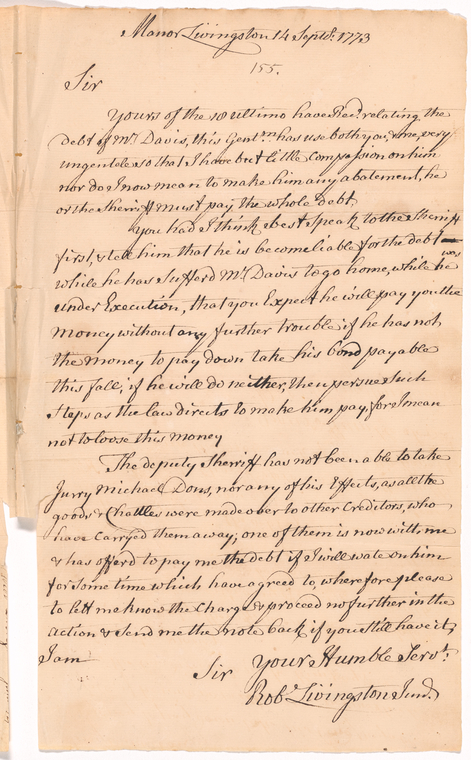 Manor Livingston 14 Septbr. 1773
155.
Sir
Yours of the 10 ultimo have Recd. relating the
debt of Mr. Davis, this Gentm. has use both you, & me, very
ungentele so that I have but little compassion on him
nor do I now mean to make him any abatement, he
or the Sherriff must pay the whole debt,
you had I think best speak to the Sherriff
first, & tell him that he is become liable for the debt
while he has Sufferd Mr. Davis to go home, while he was
under Execution, that you Expect he will pay you the
money without any further trouble if he has not
the money to pay down take his bond payable
this fall; if he will do neither, then persue Such
Steps as the law directs to make him pay, for I mean
not to loose this money
The deputy Sherriff has not been able to take
Jurry Michael Dons, nor any of his Effects, as all the
goods & Chattles were made over to other Creditors, who
have carryed them away; one of them is now with me
& has offerd to pay me the debt if I will wate on him
for some time which have agreed to, wherefore please
to lett me know the Charge & proceed no further in the
action & Send me the note back if you still have it,
I am
Sir Your Humble Servt.
Robt. Livingston Junr.